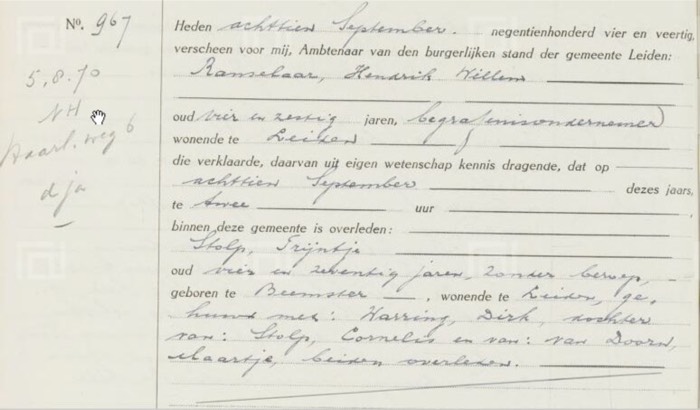 No. 967
Heden achttien September. negentienhonderd vier en veertig,
verscheen voor mij, Ambtenaar van den burgerlijken stand der gemeente Leiden:
Ranselaar, Hendrik Willem
5.8.70
oud vier en zestig jaren, begrafenisondernemer
NH
wonende te Leiden
Haarl. weg 6
die verklaarde, daarvan uit eigen wetenschap kennis dragende, dat op
achttien September dezes jaars,
d ja
te twee uur
binnen deze gemeente is overleden:
Stolp, Trijntje
oud vier en zeventig jaren, zonder beroep,
geboren te Beemster, wonende te Leiden, ge-
huwd met: Harring, Dirk, dochter
van: Stolp, Cornelis en van: van Doorn,
Maartje, beiden overleden.